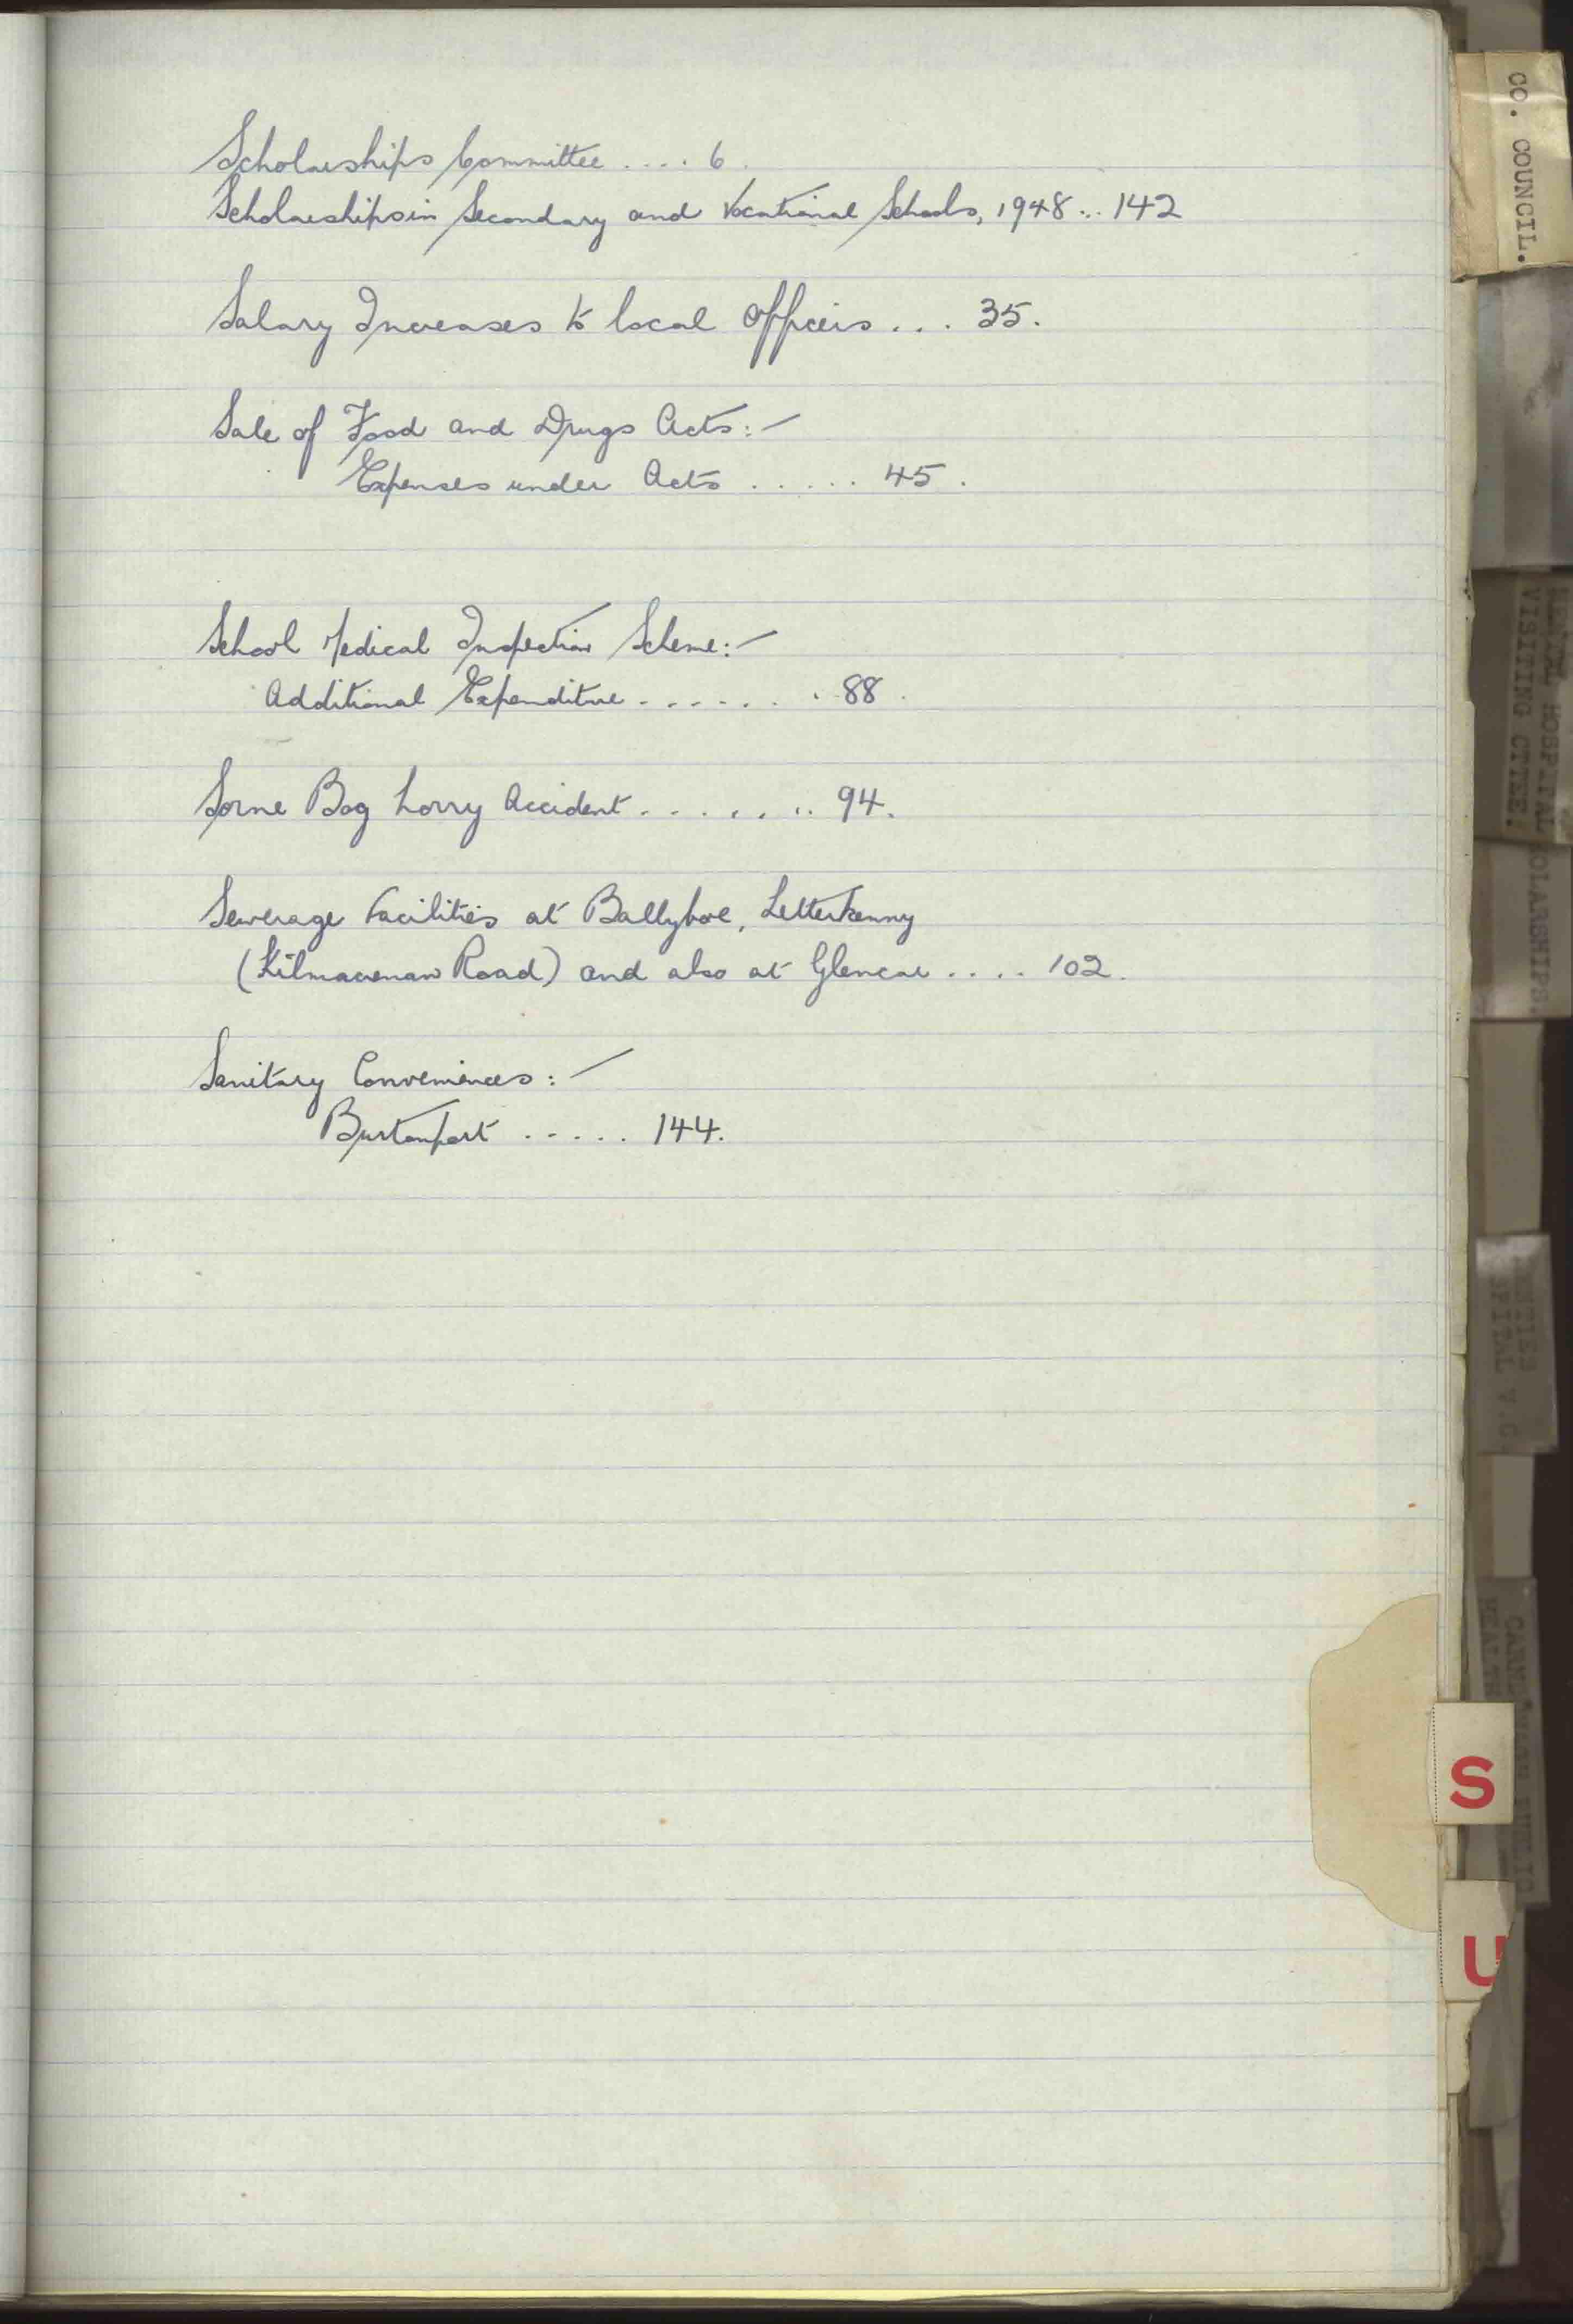 Scholarships Committee .... 6.
Scholarships in Secondary and Vocational Schools, 1948 ... 142
Salary Increases to local officers ... 35.
Sale of Food and Drugs Acts:-
Expenses under Acts ...... 45.
School Medical Inspection Scheme:-
Additional Expenditure ........ 88.
Sorne Bog Lorry Accident ........ 94.
Sewerage Facilities at Ballyboe, Letterkenny
(Kilmacrenan Road) and also at Glencar .... 102.
Sanitary Conveniences:-
Burtonport ..... 144.
CO. COUNCIL.
HOSPITAL
VISITING CTTEE.
OLARSHIPS.
S
U